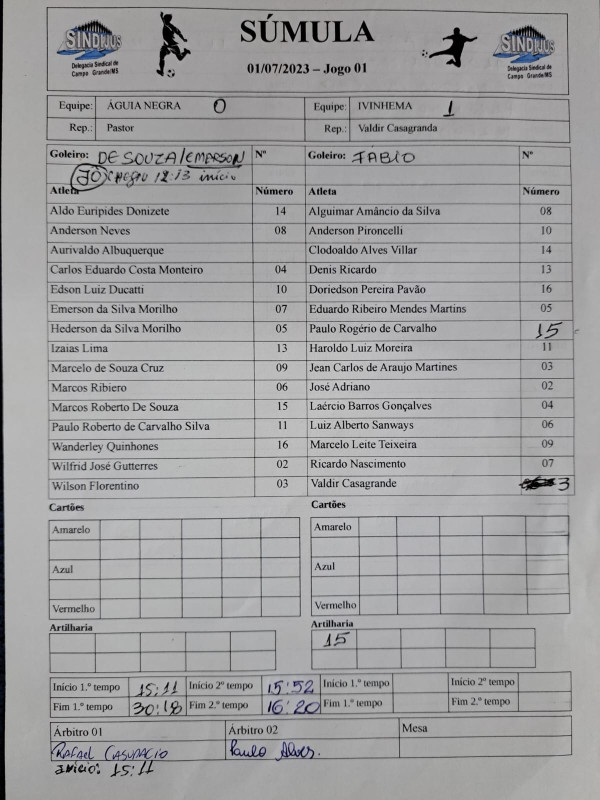 SINDIJUS
Delegacia Sindical de
Campo Grande/MS
SÚMULA
01/07/2023 – Jogo 01
SINDIJUS
Delegacia Sindical de
Campo Grande/MS
Equipe: ÁGUIA NEGRA 0 Equipe: IVINHEMA 1
Rep.: Pastor Rep.: Valdir Casagranda
Goleiro: DE SOUZA/EMERSON Nº Goleiro: FÁBIO Nº
início
Atleta Número Atleta Número
Aldo Euripides Donizete 14 Alguimar Amâncio da Silva 08
Anderson Neves 08 Anderson Pironcelli 10
Aurivaldo Albuquerque Clodoaldo Alves Villar 14
Carlos Eduardo Costa Monteiro 04 Denis Ricardo 13
Edson Luiz Ducatti 10 Doriedson Pereira Pavão 16
Emerson da Silva Morilho 07 Eduardo Ribeiro Mendes Martins 05
Hederson da Silva Morilho 05 Paulo Rogério de Carvalho 15
Izaias Lima 13 Haroldo Luiz Moreira 11
Marcelo de Souza Cruz 09 Jean Carlos de Araujo Martines 03
Marcos Ribiero 06 José Adriano 02
Marcos Roberto De Souza 15 Laércio Barros Gonçalves 04
Paulo Roberto de Carvalho Silva 11 Luiz Alberto Sanways 06
Wanderley Quinhones 16 Marcelo Leite Teixeira 09
Wilfrid José Gutterres 02 Ricardo Nascimento 07
Wilson Florentino 03 Valdir Casagrande 3
Cartões Cartões
Amarelo Amarelo
Azul Azul
Vermelho Vermelho
Artilharia Artilharia
15
Início 1.º tempo 15:11 Início 2º tempo 15:52 Início 1.º tempo Início 2º tempo
Fim 1.º tempo 30:18 Fim 2.º tempo 16:20 Fim 1.º tempo Fim 2.º tempo
Árbitro 01 Árbitro 02 Mesa
Rafael Paulo Alves.
Início: 15:11